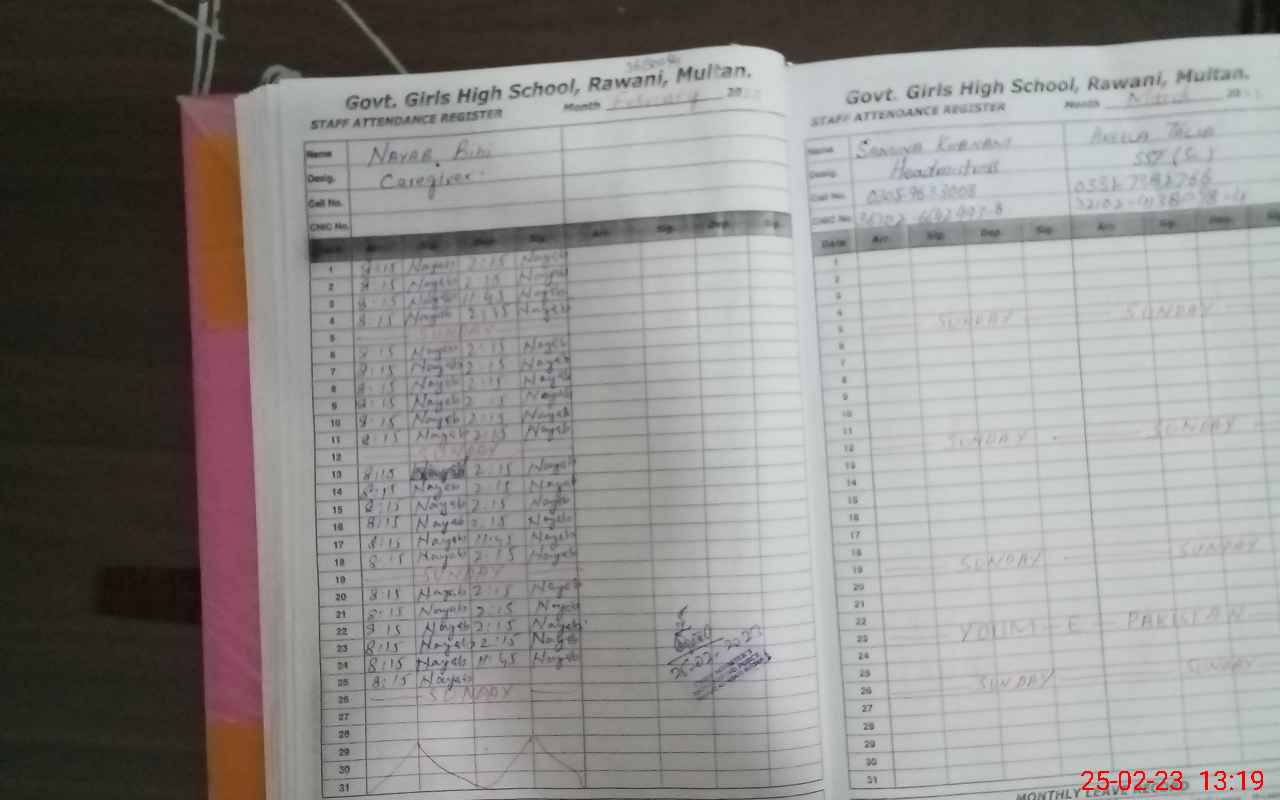 Govt. Girls High School, Rawani, Multan.
STAFF ATTENDANCE REGISTER Month February 20
Name Nayab Bibi
Desig. Caregiver
Cell No.
CNIC No.
Date Arr. Sig. Dep. Sig. Arr. Sig. Dep. Sig.
1 8:15 Nayab 2:15 Nayab
2 8:15 Nayab 2:15 Nayab
3 8:15 Nayab 11:45 Nayab
4 8:15 Nayab 2:15 Nayab
5 SUNDAY
6 8:15 Nayab 2:15 Nayab
7 8:15 Nayab 2:15 Nayab
8 8:15 Nayab 2:15 Nayab
9 8:15 Nayab 2:15 Nayab
10 8:15 Nayab 2:15 Nayab
11 8:15 Nayab 2:15 Nayab
12 SUNDAY
13 8:15 Nayab 2:15 Nayab
14 8:15 Nayab 2:15 Nayab
15 8:15 Nayab 2:15 Nayab
16 8:15 Nayab 2:15 Nayab
17 8:15 Nayab 11:45 Nayab
18 8:15 Nayab 2:15 Nayab
19 SUNDAY
20 8:15 Nayab 2:15 Nayab
21 8:15 Nayab 2:15 Nayab
22 8:15 Nayab 2:15 Nayab
23 8:15 Nayab 2:15 Nayab
24 8:15 Nayab 11:45 Nayab
25 8:15 Nayab
26 SUNDAY
27
28
29
30
31
25-02-2023
Govt. Girls High School, Rawani, Multan.
STAFF ATTENDANCE REGISTER Month 20
Name
Desig. Headmistress SST (Sc)
Cell No.
CNIC No.
Date Arr. Sig. Dep. Sig. Arr. Sig. Dep.
1
2
3
4
5 SUNDAY SUNDAY
6
7
8
9
10
11
12 SUNDAY SUNDAY
13
14
15
16
17
18
19 SUNDAY SUNDAY
20
21
22
23 YOUM-E-PAKISTAN
24
25
26 SUNDAY SUNDAY
27
28
29
30
31
MONTHLY LEAVE RECORD
25-02-23 13:19